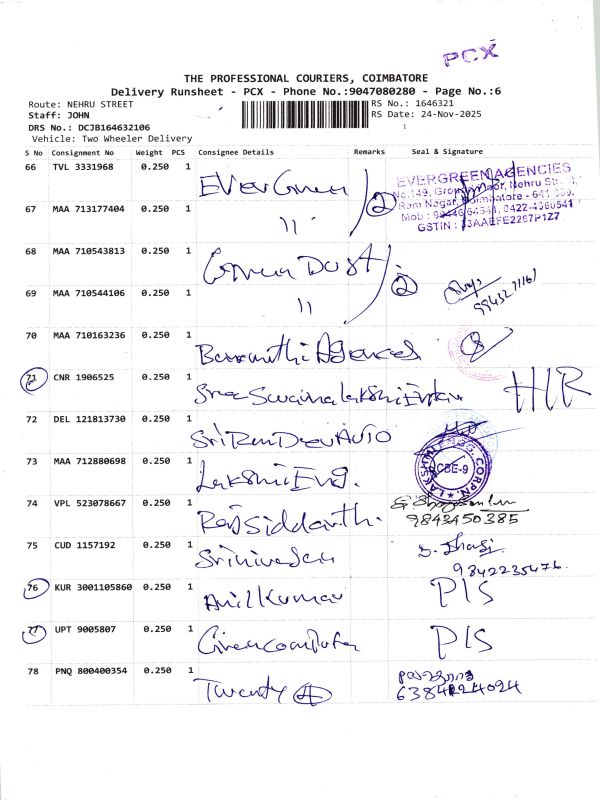 PCX
THE PROFESSIONAL COURIERS, COIMBATORE
Delivery Runsheet - PCX - Phone No.:9047080280 - Page No.:6
Route: NEHRU STREET RS No.: 1646321
Staff: JOHN RS Date: 24-Nov-2025
DRS No.: DCJB164632106
Vehicle: Two Wheeler Delivery
S No Consignment No Weight PCS Consignee Details Remarks Seal & Signature
66 TVL 3331968 0.250 1 EVerGreen 2
EVERGREEN AGENCIES
Nehru
Ram Nagar, Coimbatore
Mob :
GSTIN :
67 MAA 713177404 0.250 1 "
68 MAA 710543813 0.250 1 Green Dust 2
69 MAA 710544106 0.250 1 "
70 MAA 710163236 0.250 1 Agencies
71 CNR 1906525 0.250 1 Sree HR
72 DEL 121813730 0.250 1 Sri Ram Dev AUTO
73 MAA 712880698 0.250 1 Lakshmi Eng.
LAKSHMI ENGG. CORPN. CBE-9
74 VPL 523078667 0.250 1 Raj Siddarth.
9843450385
75 CUD 1157192 0.250 1 Srinivasan
9842235476
76 KUR 3001105860 0.250 1 Anil Kumar P/S
77 UPT 9005807 0.250 1 Green computer P/S
78 PNQ 800400354 0.250 1 Twenty 4